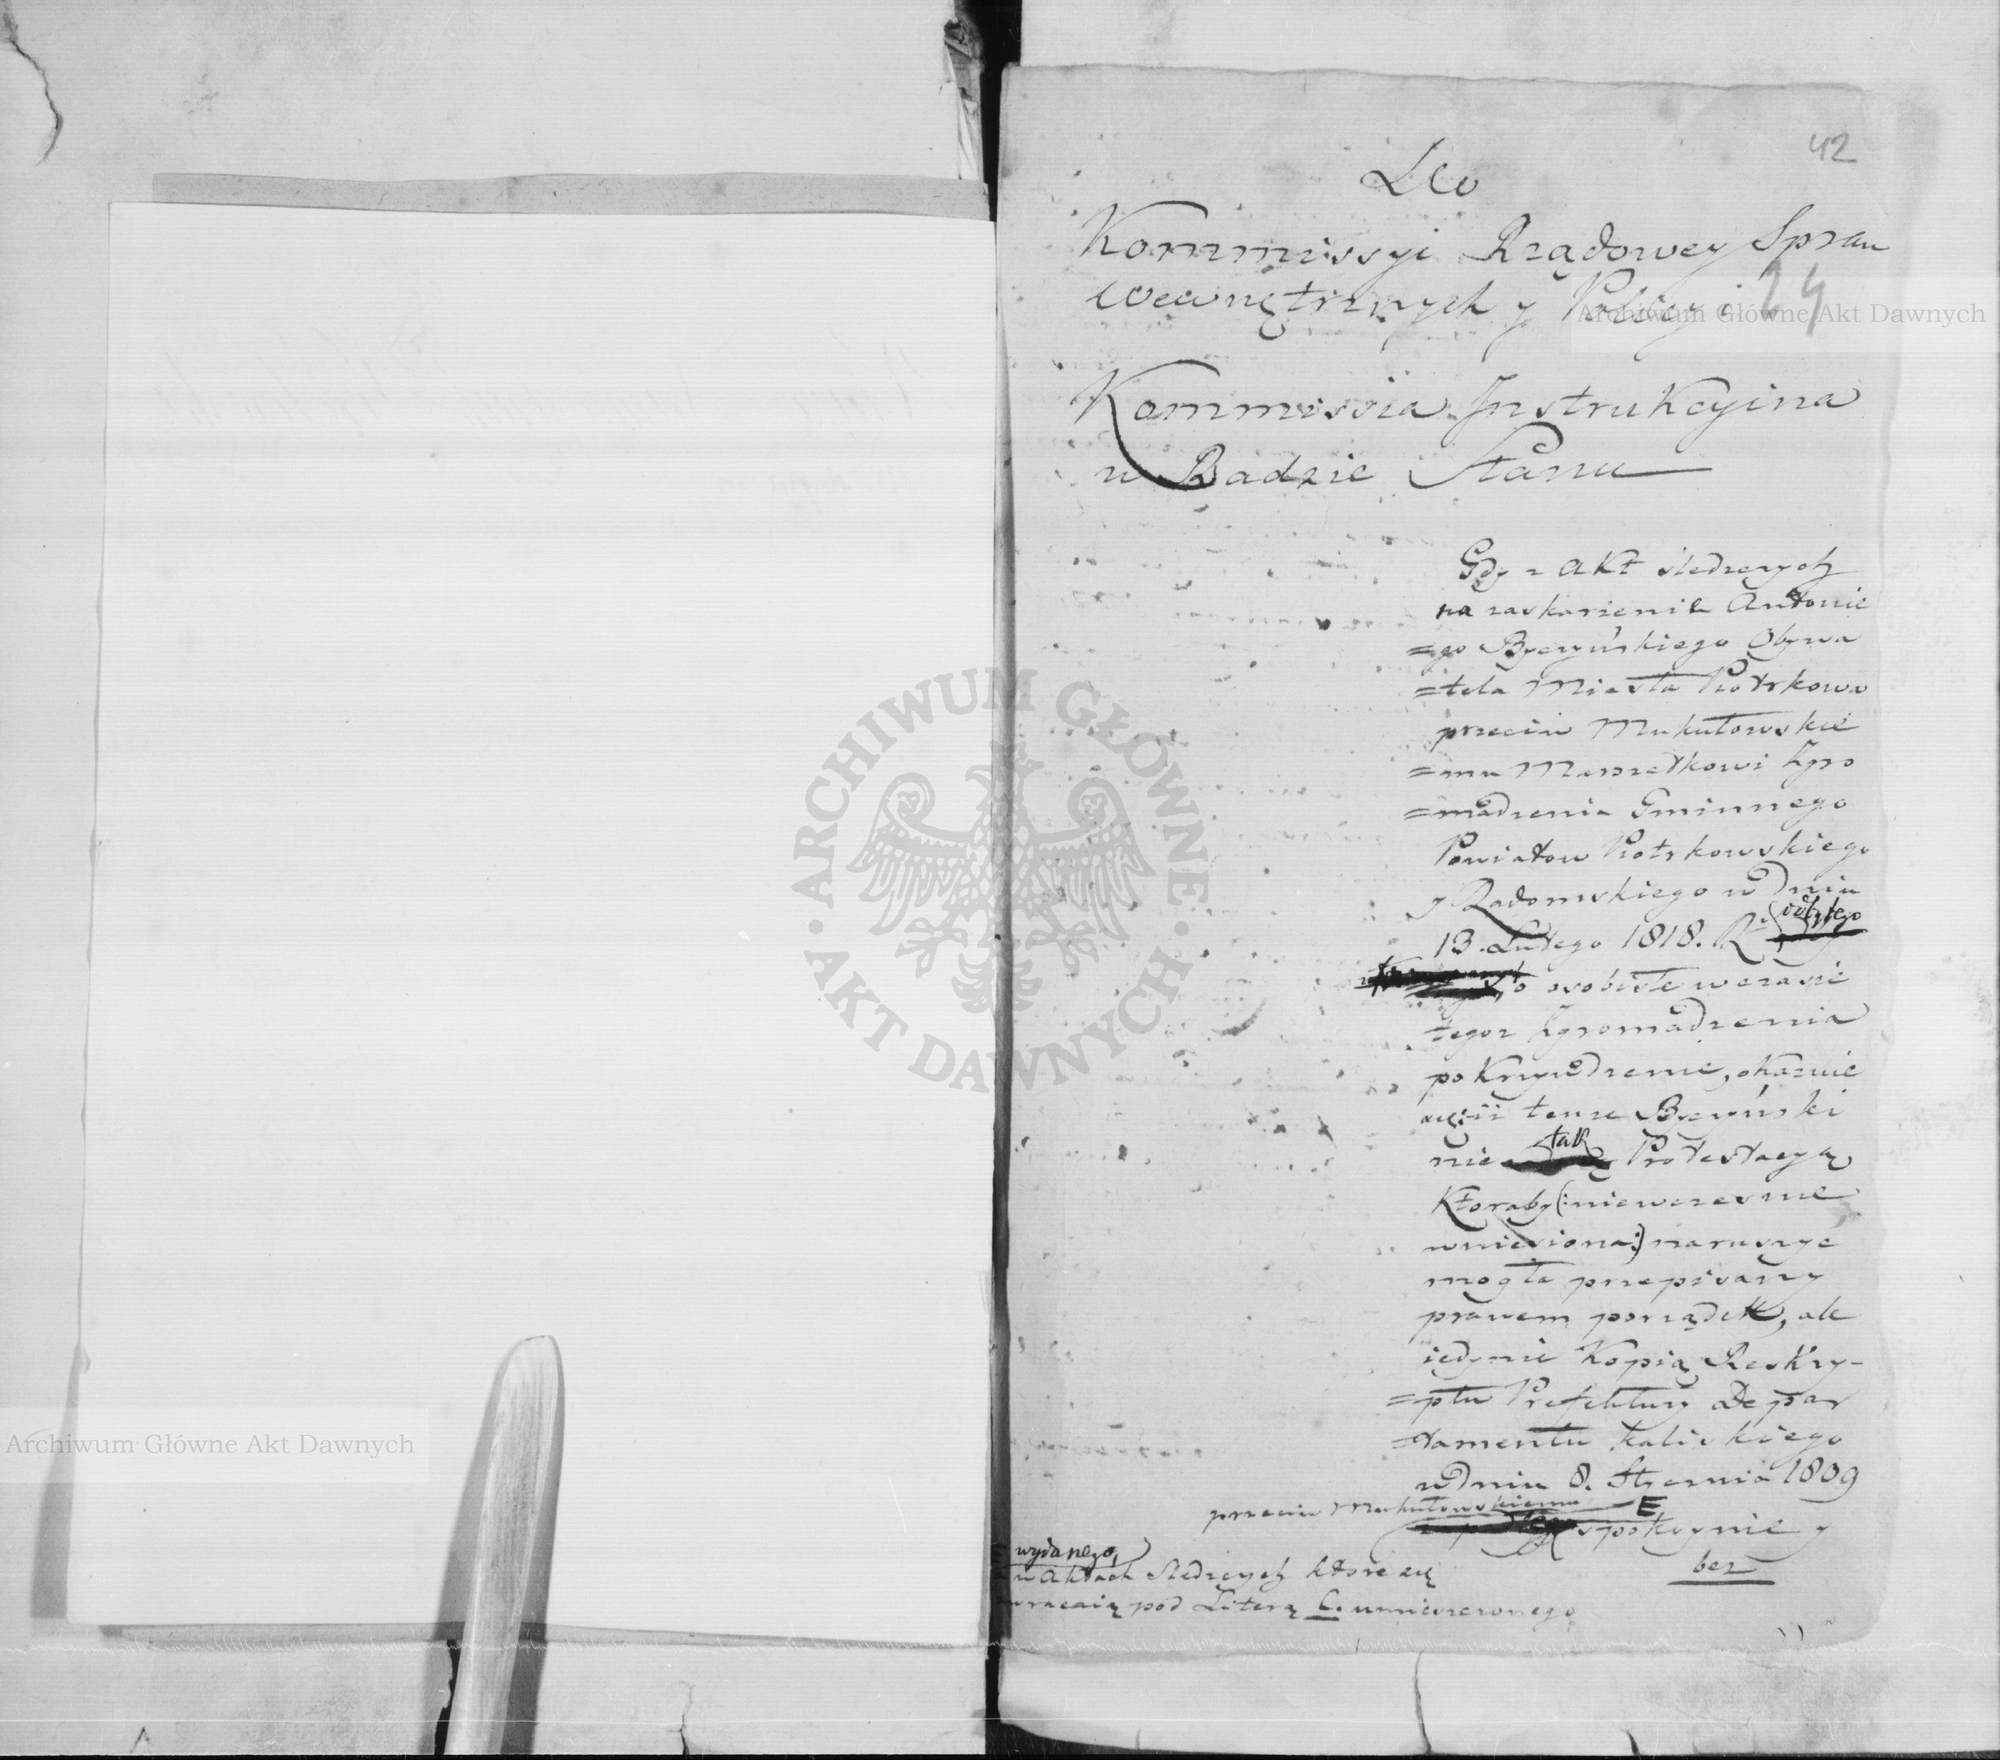 42
Do
Kommissyi Rządowey Spraw
Wewnętrznych y Policyi
24
Kommissia Instrukcyina
w Radzie Stanu
Gdy z Akt śledzczych
na zaskarżenie Antonie
=go Byczyńskiego Obywa
=tela Miasta Piotrkowa
przeciw Mukułowskie
=mu Marszałkowi Zgro
=madzenia Gminnego
Powiatow Piotrkowskiego
y Radomskiego w Dniu
13. Lutego 1818. R. odbytego
o osobiste w czasie
tegoż Zgromadzenia
pokrzywdzenie, okazuie
się: iż tenże Byczyński
nie tak Protestacyą
Ktoraby (: niewcześnie
wniesiona :) naruszyć
mogła przepisany
prawem porządek, ale
iedynie Kopią Reskry-
=ptu Prefektury Depar
=tamentu Kaliskiego
w Dniu 8. Stycznia 1809
przeciw Mukułowskiemu E
spokoynie y
wydanego,
w Aktach Śledczych które się
wracaią pod Literą C. umieszczonego
bez
Archiwum Główne Akt Dawnych
Archiwum Główne Akt Dawnych
ARCHIWUM GŁÓWNE · AKT DAWNYCH ·